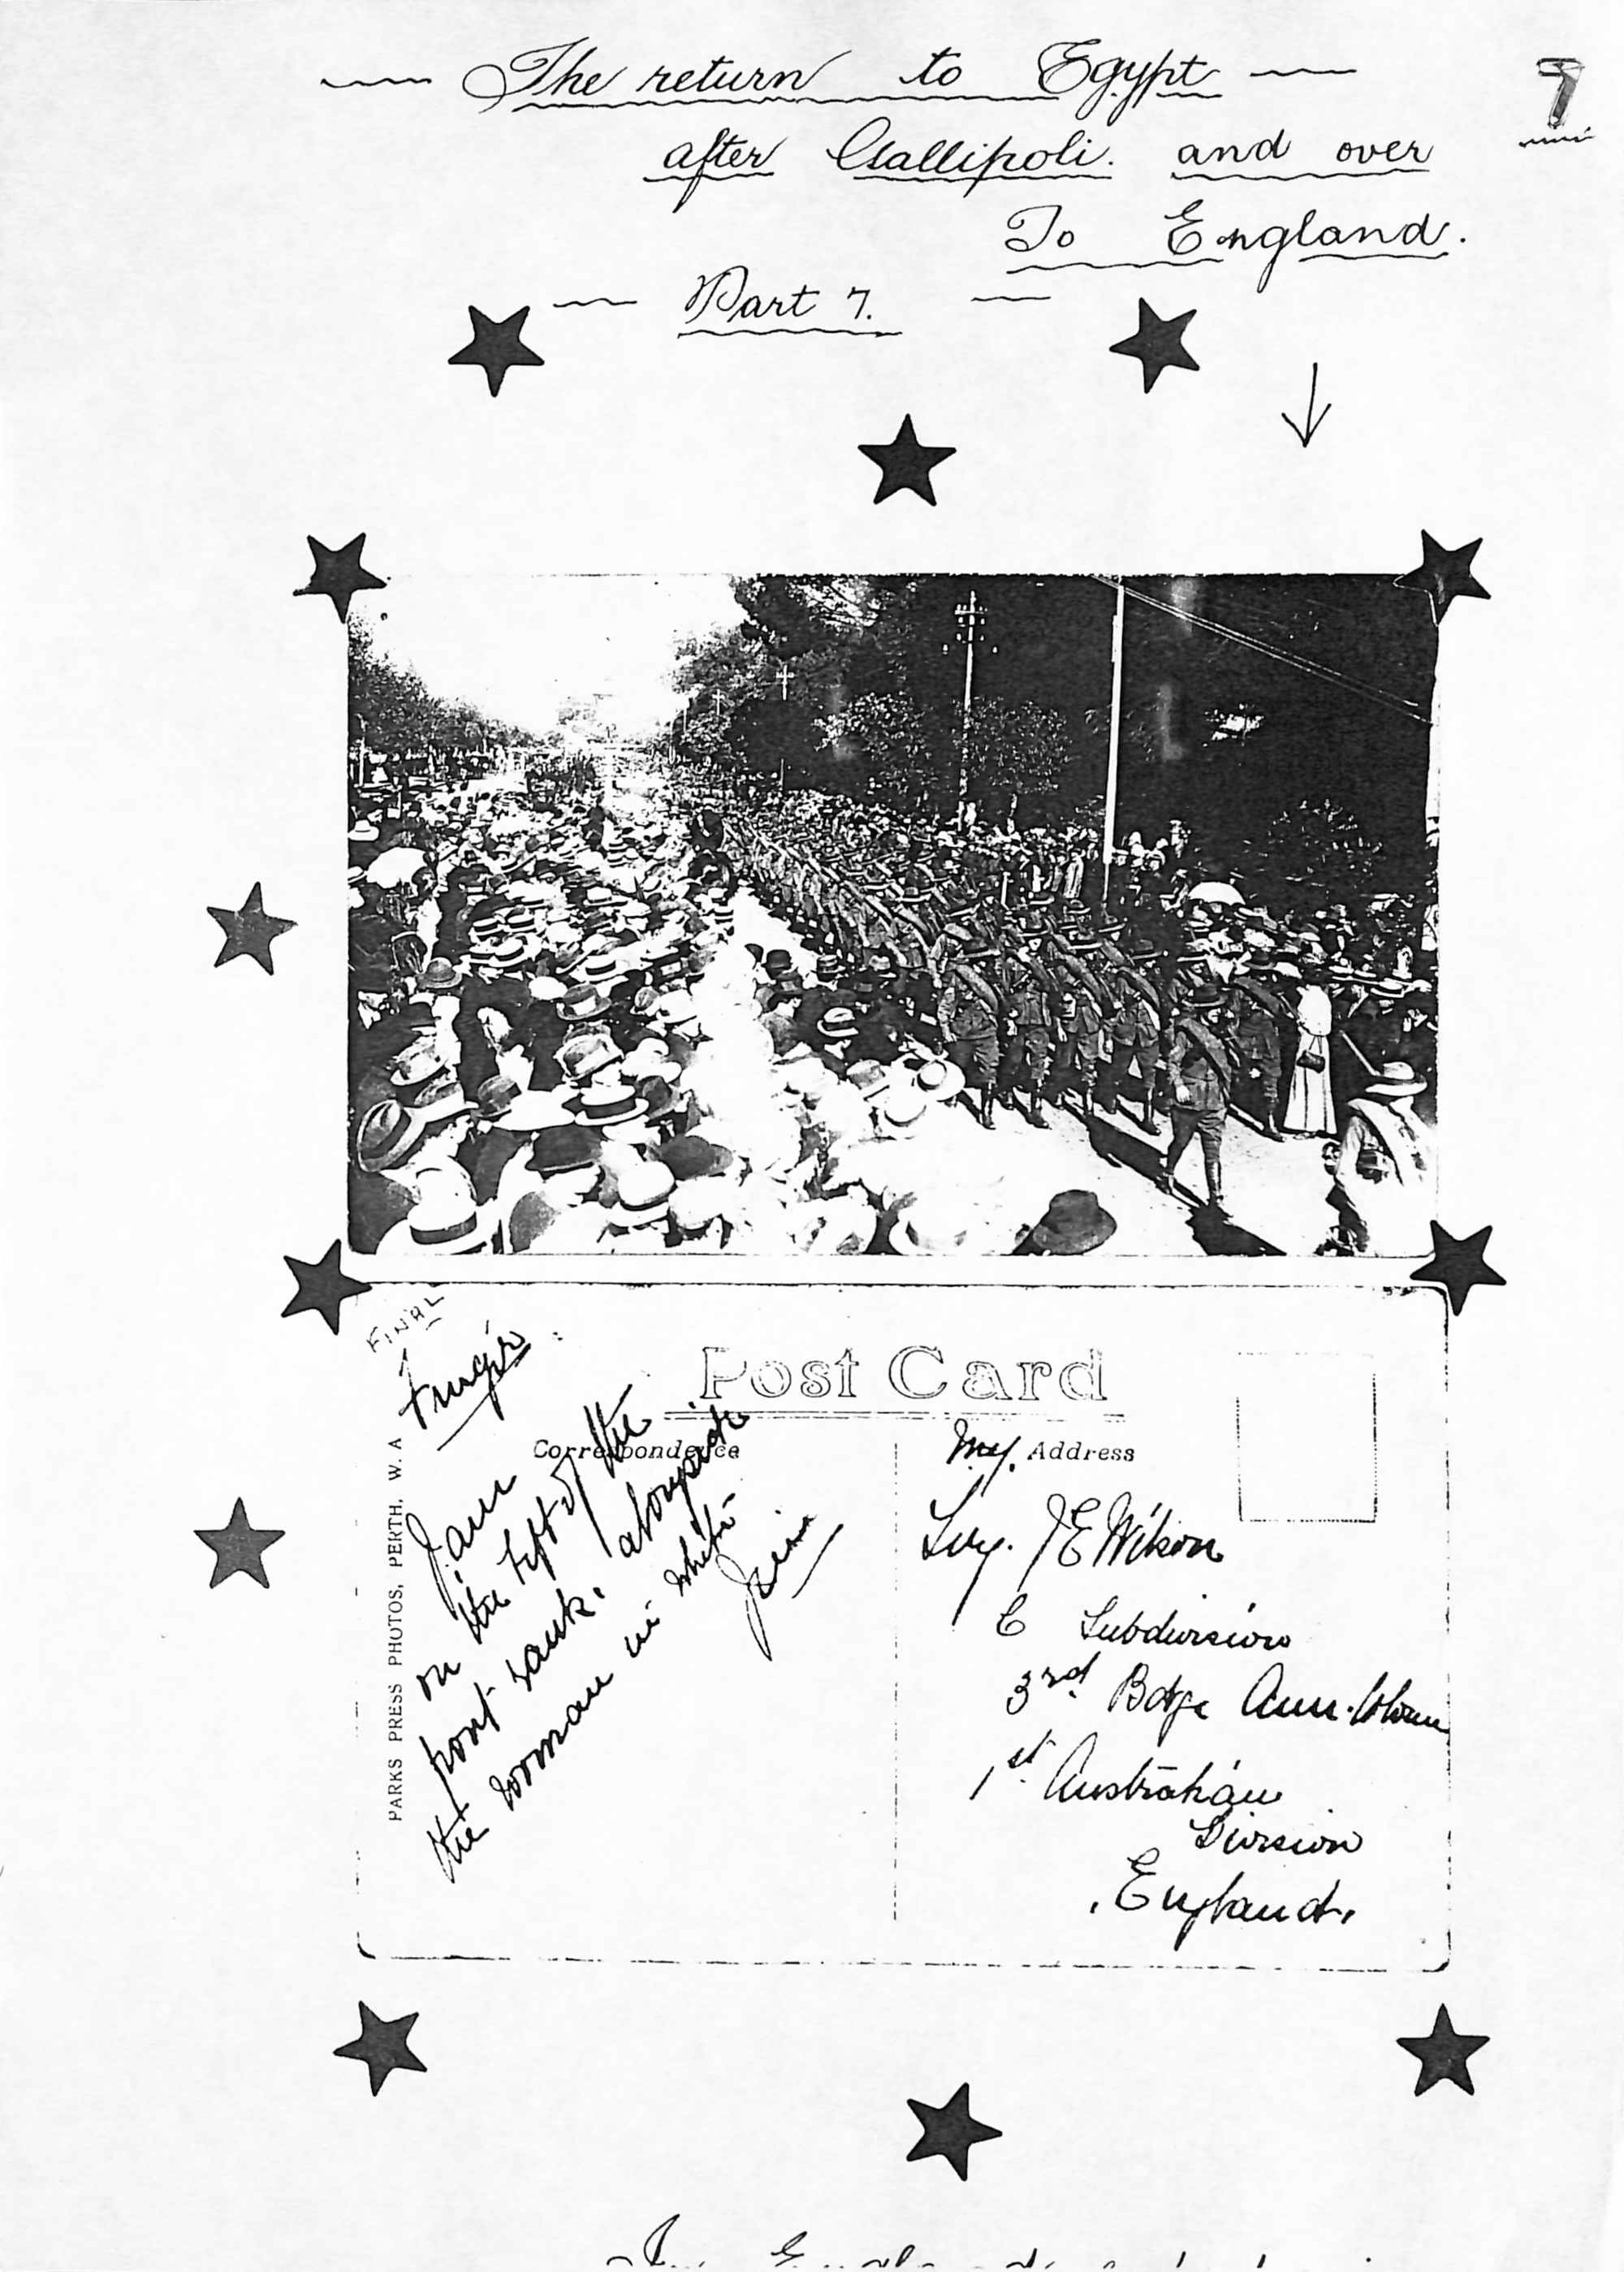 The return to Egypt
7
after Gallipoli. and over
To England.
Part 7.
FINAL
Post Card
Correspondence
I am
on the left of the
front rank. alongside
the woman in white
Jim
My. Address
J E Wilson
C Subdivision
3rd Bdge
1st Australian
Division
England.
PARKS PRESS PHOTOS, PERTH, W. A